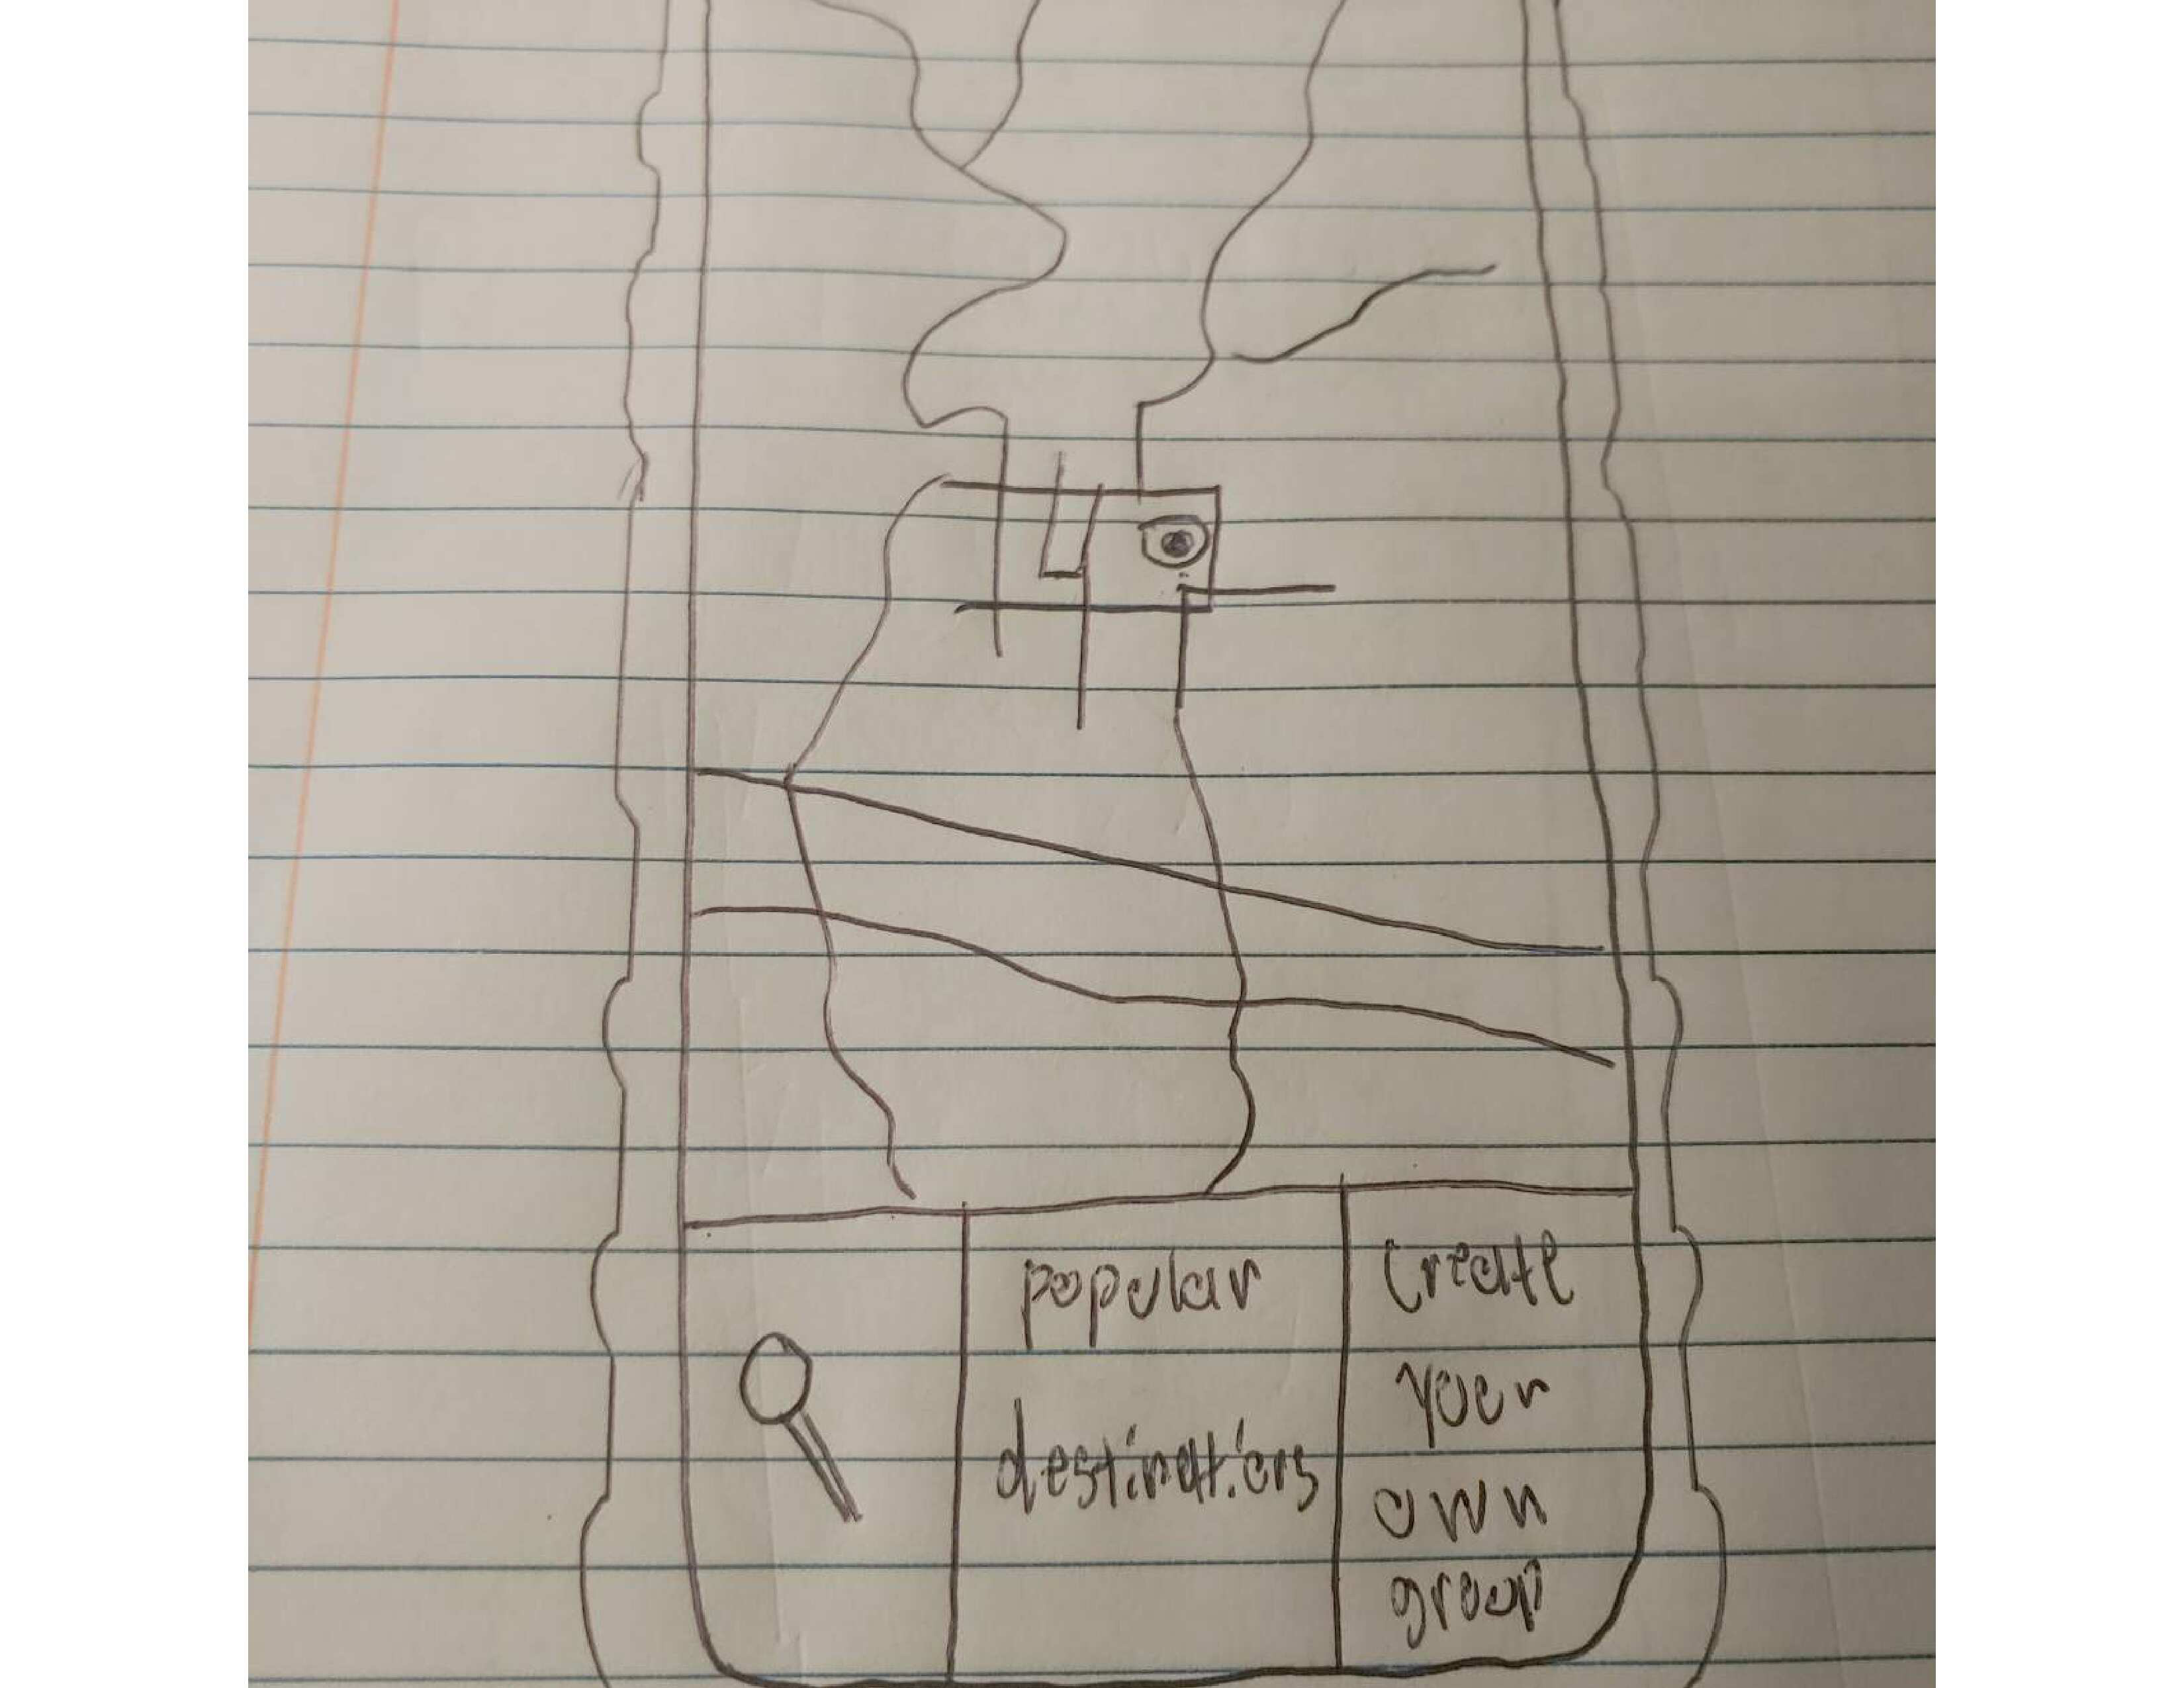 popular
destinations
create
your
own
group